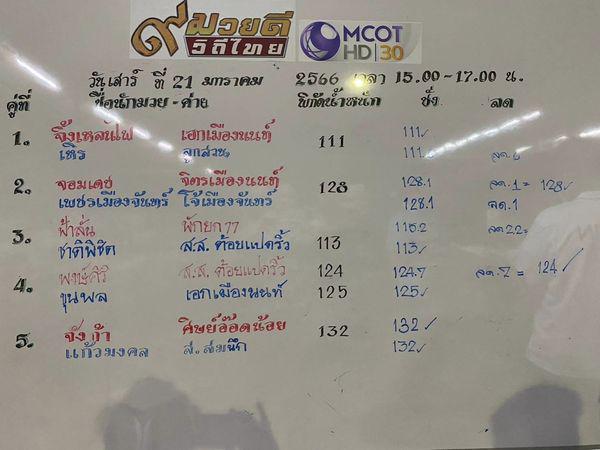 ๙ มวยดี
วิถีไทย
MCOT
HD 30
วันเสาร์ ที่ 21 มกราคม 2566 เวลา 15.00-17.00 น.
คู่ที่ ชื่อนักมวย - ค่าย พิกัดน้ำหนัก ชั่ง ลด
1. จิ้งเหลนไฟ เอกเมืองนนท์ 111 111 ✓
เหิร ลูกสวน 111. ลด.
2. จอมเดช จิตรเมืองนนท์ 128 128.1 ลด.1 = 128 ✓
เพชรเมืองจันทร์ โจ้เมืองจันทร์ 128.1 ลด.1
3. ฟ้าลั่น ผักยก77 113 ลด 2.2 =
ชาติพิชิต ส.ส. ต้อยแปดริ้ว 113 ✓
4. พงษ์ศิริ ส.ส. ต้อยแปดริ้ว 124 124.7 ลด.7 = 124 ✓
ขุนพล เอกเมืองนนท์ 125 125 ✓
5. จังก้า ศิษย์อ๊อดน้อย 132 132 ✓
แก้วมงคล ส.สมนึก 132 ✓